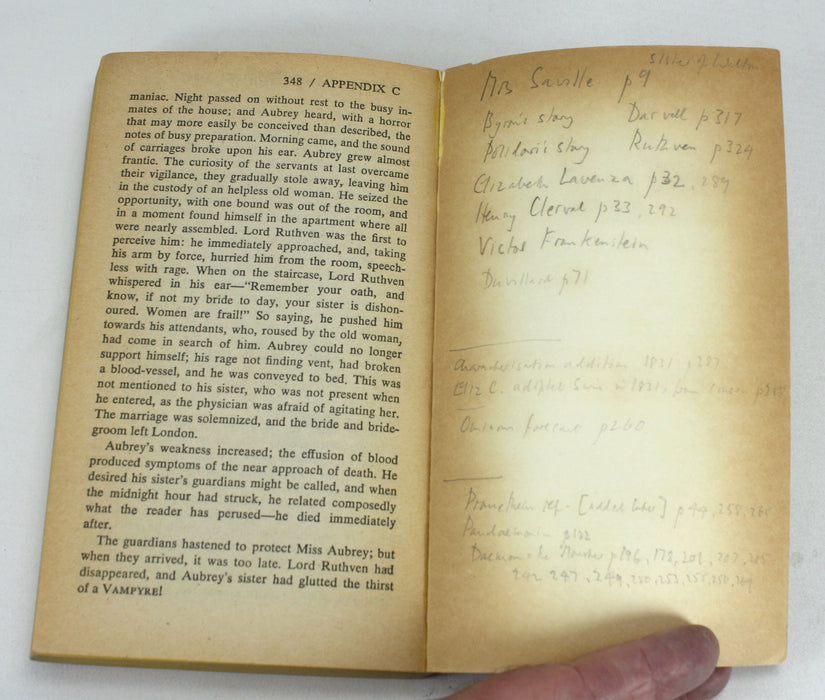 348 / APPENDIX C
maniac. Night passed on without rest to the busy in-
mates of the house; and Aubrey heard, with a horror
that may more easily be conceived than described, the
notes of busy preparation. Morning came, and the sound
of carriages broke upon his ear. Aubrey grew almost
frantic. The curiosity of the servants at last overcame
their vigilance, they gradually stole away, leaving him
in the custody of an helpless old woman. He seized the
opportunity, with one bound was out of the room, and
in a moment found himself in the apartment where all
were nearly assembled. Lord Ruthven was the first to
perceive him: he immediately approached, and, taking
his arm by force, hurried him from the room, speech-
less with rage. When on the staircase, Lord Ruthven
whispered in his ear—“Remember your oath, and
know, if not my bride to day, your sister is dishon-
oured. Women are frail!” So saying, he pushed him
towards his attendants, who, roused by the old woman,
had come in search of him. Aubrey could no longer
support himself; his rage not finding vent, had broken
a blood-vessel, and he was conveyed to bed. This was
not mentioned to his sister, who was not present when
he entered, as the physician was afraid of agitating her.
The marriage was solemnized, and the bride and bride-
groom left London.
Aubrey's weakness increased; the effusion of blood
produced symptoms of the near approach of death. He
desired his sister's guardians might be called, and when
the midnight hour had struck, he related composedly
what the reader has perused—he died immediately
after.
The guardians hastened to protect Miss Aubrey; but
when they arrived, it was too late. Lord Ruthven had
disappeared, and Aubrey's sister had glutted the thirst
of a VAMPYRE!
Sister of Walton
Mrs Saville p9
Byron's story Darvell p317
Polidori's story Ruthven p324
Elizabeth Lavenza p32, 289
Henry Clerval p33, 292
Victor Frankenstein
p71
Characterisation addition 1831, 287
Eliz C. adopted Swiss in 1831, from cousin
Ominous forecast p260
Promethean ref. - [added later] p44, 258,
Pandaemonium p102
Daemon = the Monster 178, 201, 207,
242 247, 249, 250, 253, 255,